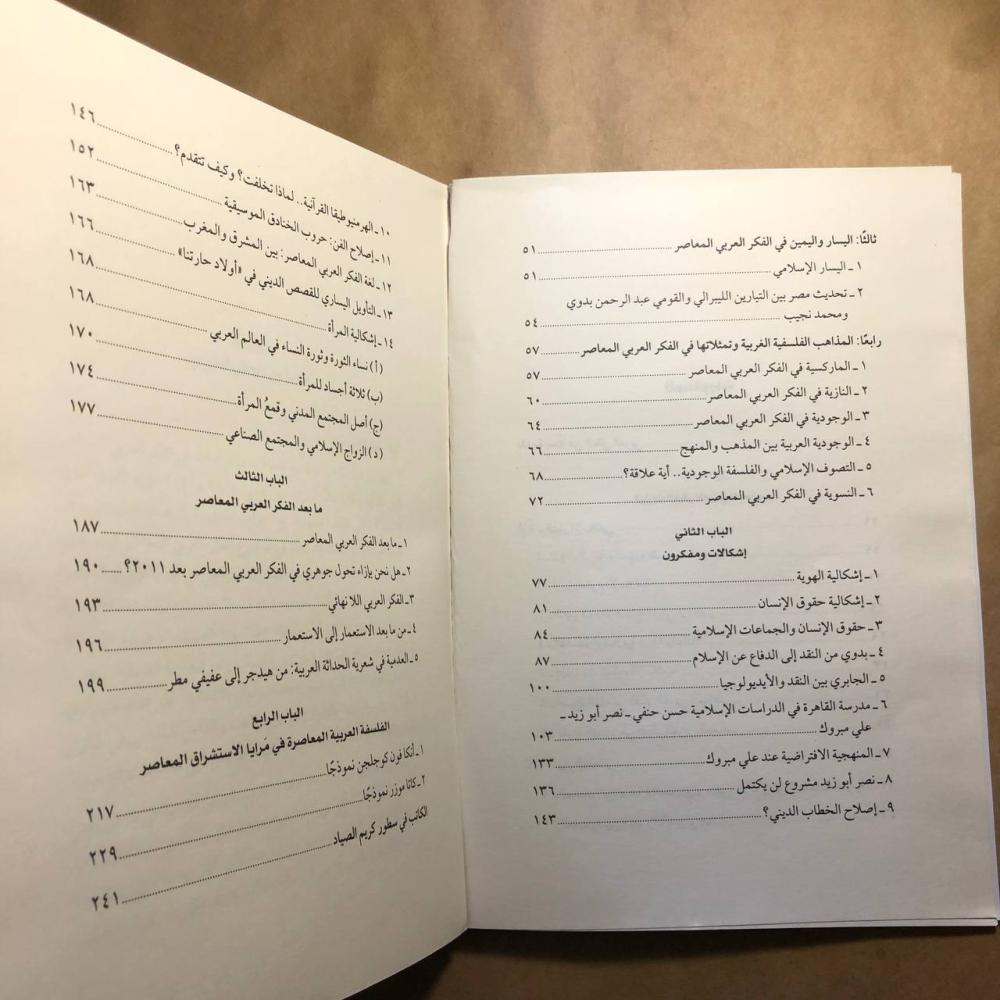 ثالثًا: اليسار واليمين في الفكر العربي المعاصر ... ٥١
١ ـ اليسار الإسلامي ... ٥١
٢ ـ تحديث مصر بين التيارين الليبرالي والقومي عبد الرحمن بدوي
ومحمد نجيب ... ٥٤
رابعًا: المذاهب الفلسفية الغربية وتمثلاتها في الفكر العربي المعاصر ... ٥٧
١ ـ الماركسية في الفكر العربي المعاصر ... ٥٧
٢ ـ النازية في الفكر العربي المعاصر ... ٦٠
٣ ـ الوجودية في الفكر العربي المعاصر ... ٦٤
٤ ـ الوجودية العربية بين المذهب والمنهج ... ٦٦
٥ ـ التصوف الإسلامي والفلسفة الوجودية.. أية علاقة؟ ... ٦٨
٦ ـ النسوية في الفكر العربي المعاصر ... ٧٢
الباب الثاني
إشكالات ومفكرون
١ ـ إشكالية الهوية ... ٧٧
٢ ـ إشكالية حقوق الإنسان ... ٨١
٣ ـ حقوق الإنسان والجماعات الإسلامية ... ٨٤
٤ ـ بدوي من النقد إلى الدفاع عن الإسلام ... ٨٧
٥ ـ الجابري بين النقد والأيديولوجيا ... ١٠٠
٦ ـ مدرسة القاهرة في الدراسات الإسلامية حسن حنفي ـ نصر أبو زيد ـ
علي مبروك ... ١٠٣
٧ ـ المنهجية الافتراضية عند علي مبروك ... ١٣٣
٨ ـ نصر أبو زيد مشروع لن يكتمل ... ١٣٦
٩ ـ إصلاح الخطاب الديني؟ ... ١٤٣
١٠ ـ الهرمنيوطيقا القرآنية.. لماذا تخلفت؟ وكيف تتقدم؟ ... ١٤٦
١١ ـ إصلاح الفن: حروب الخنادق الموسيقية ... ١٥٢
١٢ ـ لغة الفكر العربي المعاصر: بين المشرق والمغرب ... ١٦٣
١٣ ـ التأويل اليساري للقصص الديني في «أولاد حارتنا» ... ١٦٦
١٤ ـ إشكالية المرأة ... ١٦٨
(أ) نساء الثورة وثورة النساء في العالم العربي ... ١٦٨
(ب) ثلاثة أجساد للمرأة ... ١٧٠
(ج) أصل المجتمع المدني وقمعُ المرأة ... ١٧٤
(د) الزواج الإسلامي والمجتمع الصناعي ... ١٧٧
الباب الثالث
ما بعد الفكر العربي المعاصر
١ ـ ما بعد الفكر العربي المعاصر ... ١٨٧
٢ ـ هل نحن بإزاء تحول جوهري في الفكر العربي المعاصر بعد ٢٠١١؟ ... ١٩٠
٣ ـ الفكر العربي اللا نهائي ... ١٩٣
٤ ـ من ما بعد الاستعمار إلى الاستعمار ... ١٩٦
٥ ـ العدمية في شعرية الحداثة العربية: من هيدجر إلى عفيفي مطر ... ١٩٩
الباب الرابع
الفلسفة العربية المعاصرة في مَرايا الاستشراق المعاصر
١ ـ أنكا فون كوجلجن نموذجًا ... ٢١٧
٢ ـ كاتا موزر نموذجًا ... ٢٢٩
الكاتب في سطور كريم الصياد ... ٢٤١